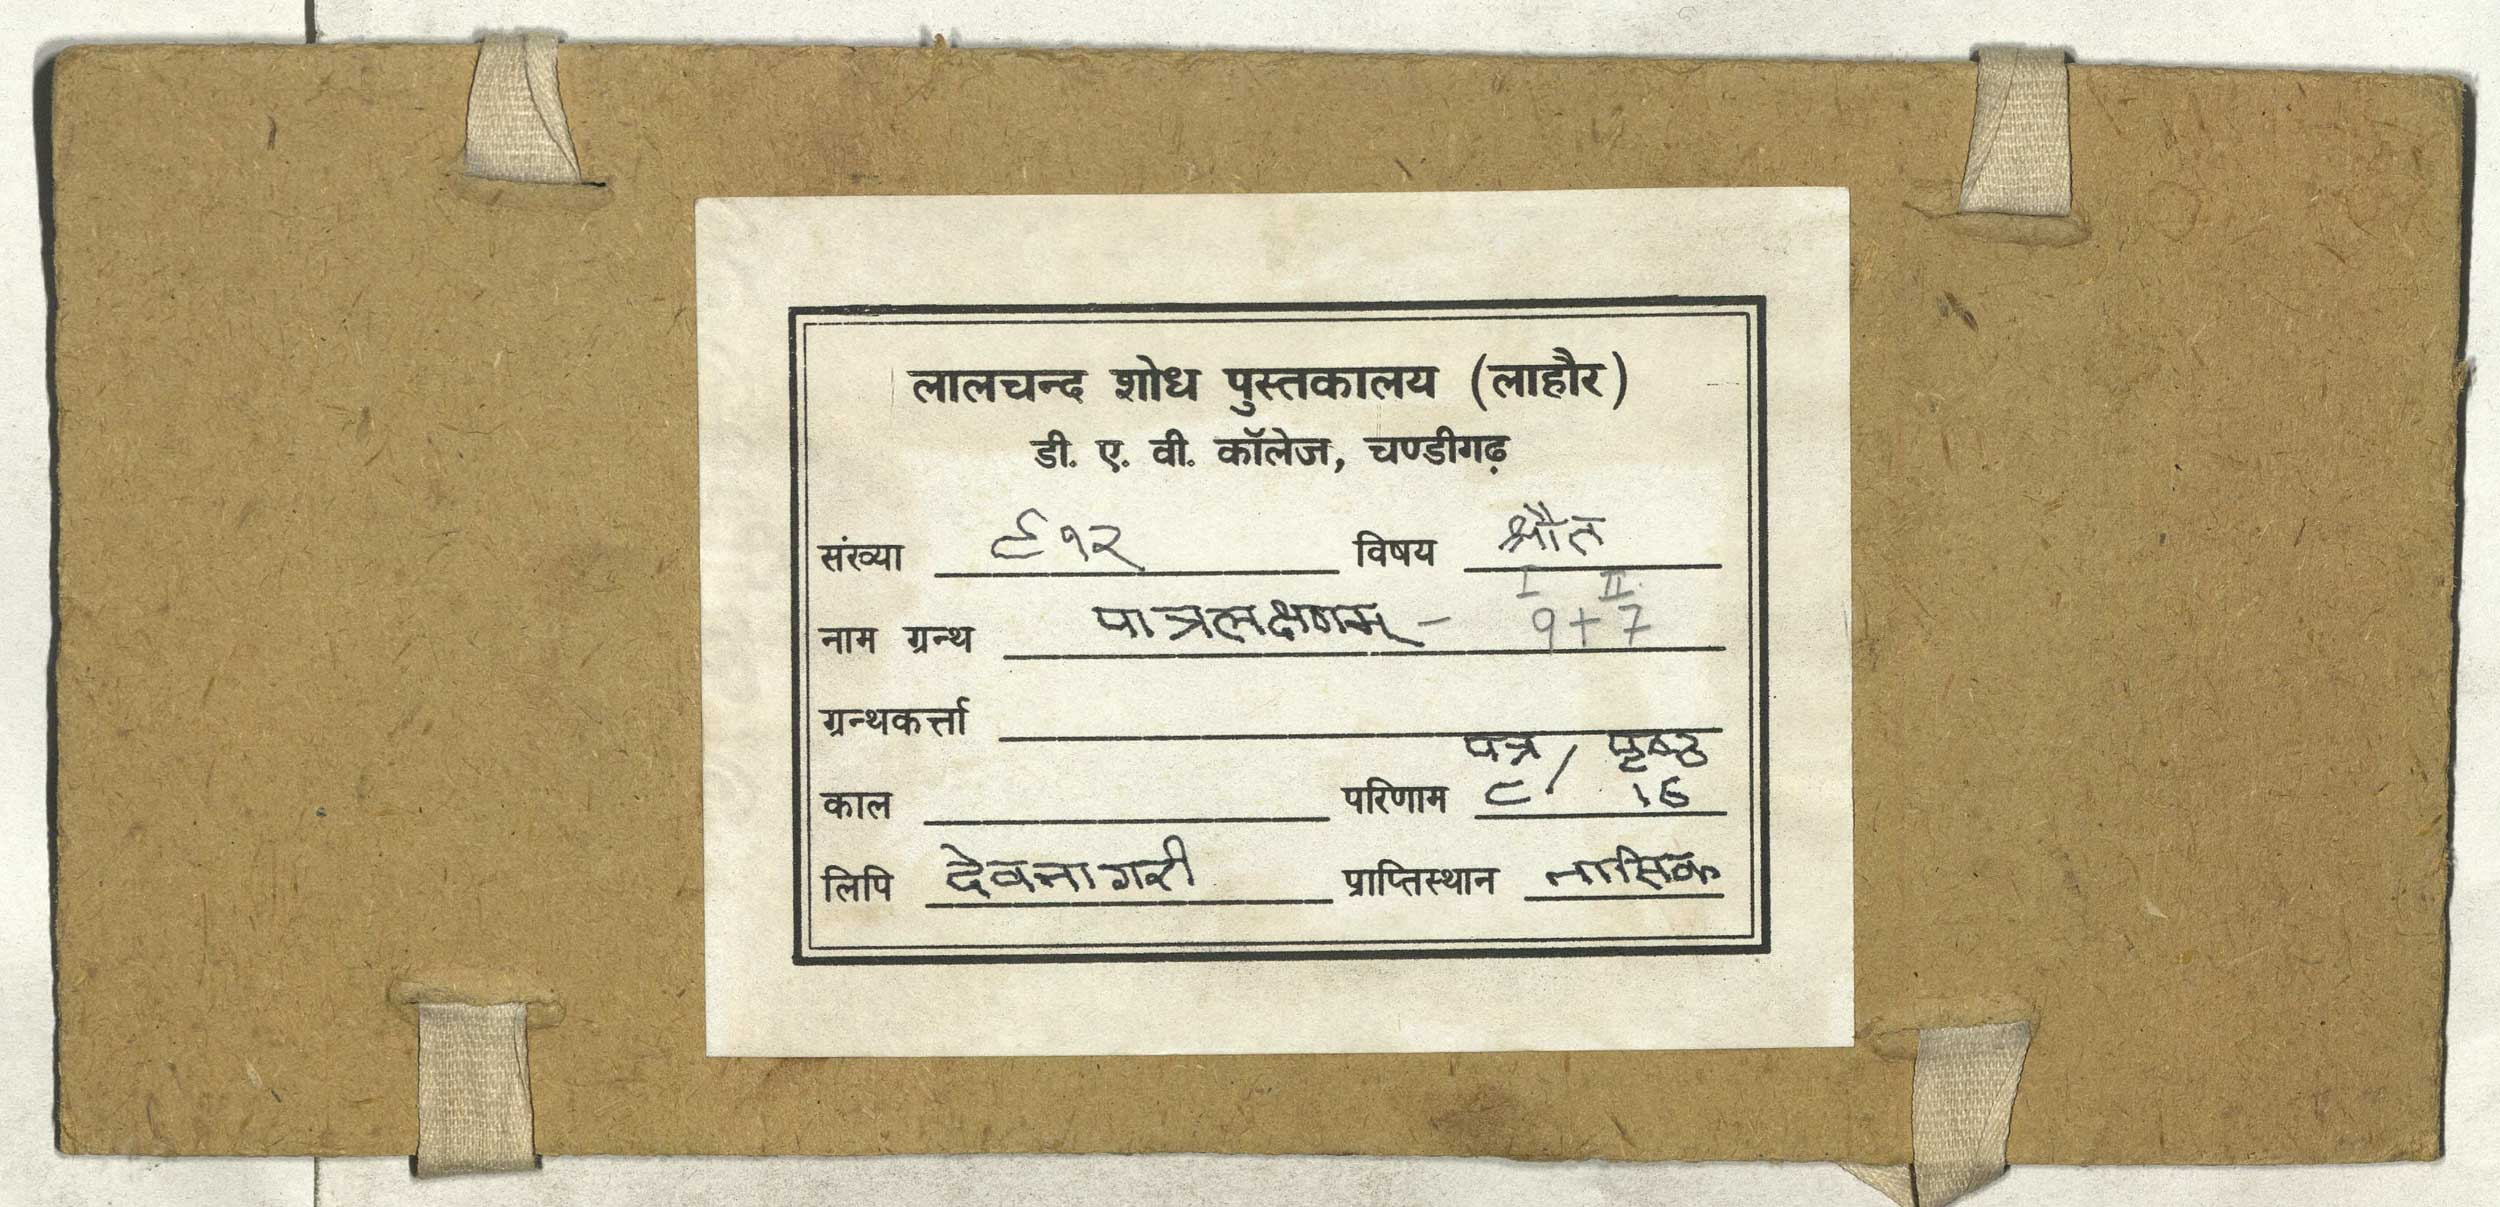 लालचन्द शोध पुस्तकालय (लाहौर)
डी. ए. वी. कॉलेज, चण्डीगढ़
संख्या ९१२ विषय श्रौत
I II
नाम ग्रन्थ पात्रलक्षणम् - 9+7
ग्रन्थकर्त्ता
पत्र / पृष्ठ
काल परिणाम ८/ १६
लिपि देवनागरी प्राप्तिस्थान नासिक